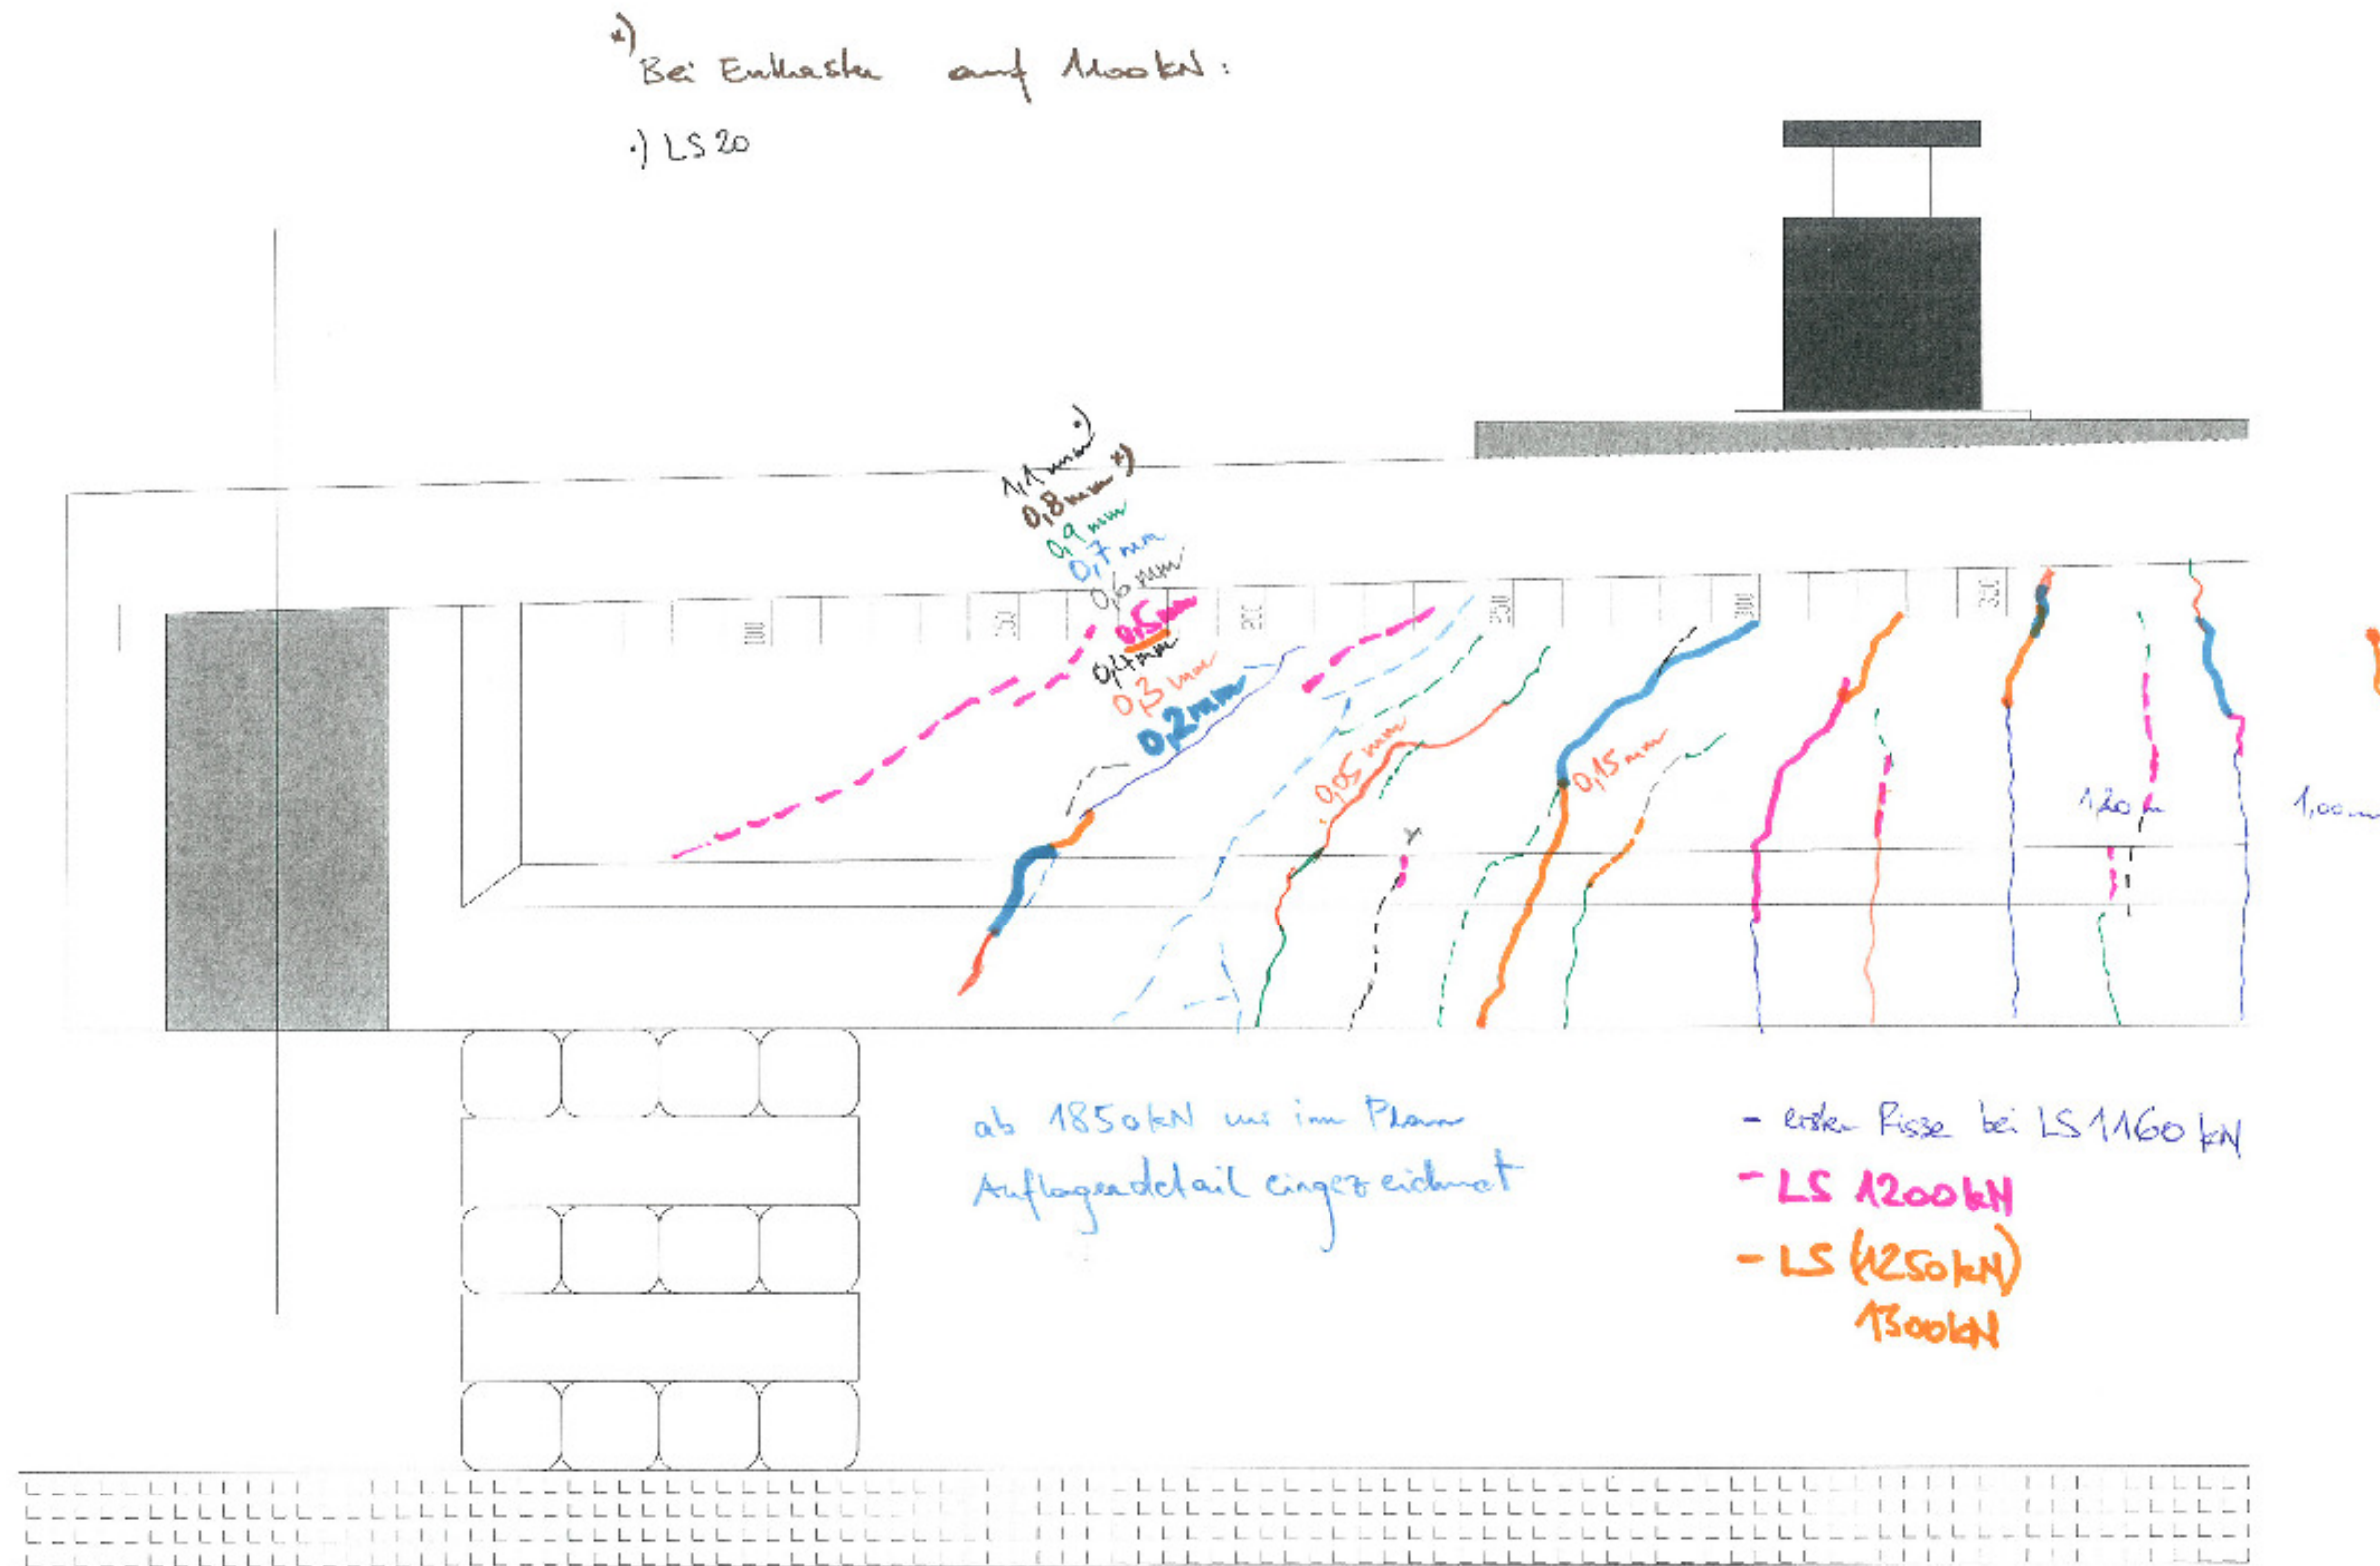 *)
Bei Entlasten auf 1100kN:
·) LS 20
1,1mm ·)
0,8mm *)
0,9mm
0,7mm
0,6mm
0,5mm
0,4mm
0,3mm
0,2mm
100
150
200
250
300
350
0,05mm
0,15mm
1,20m
1,00m
ab 1850kN nur im Plan
Auflagerdetail eingezeichnet
- ersten Risse bei LS 1160kN
- LS 1200kN
- LS (1250kN)
1300kN